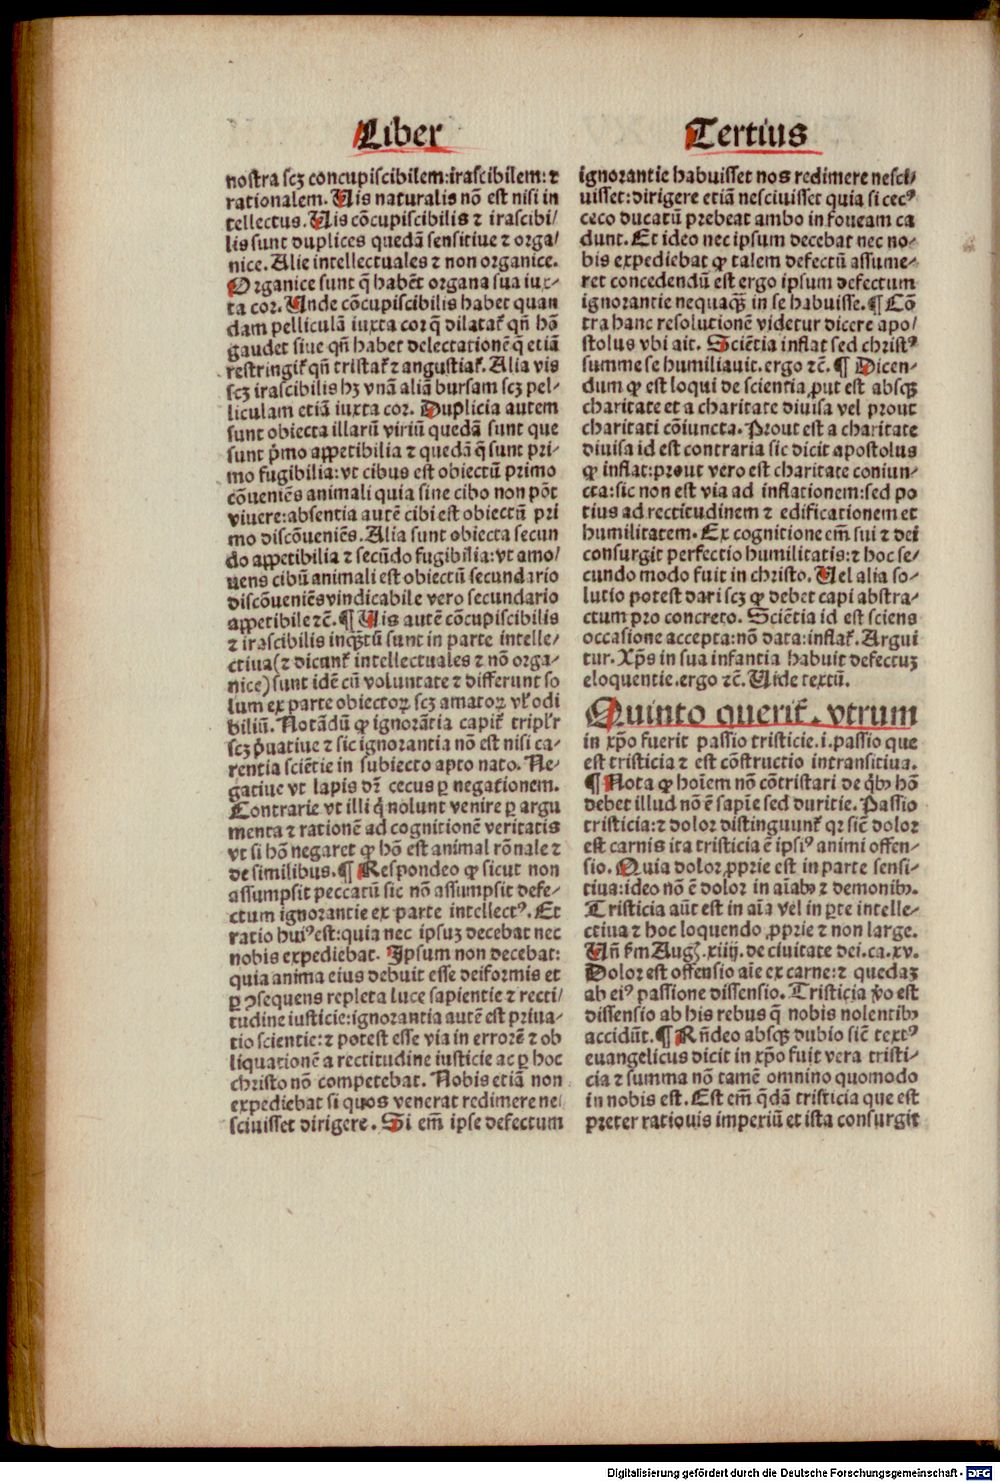 Liber
Tertius
nostra scꝫ concupiscibilem:irascibilem: ⁊
rationalem. Uis naturalis nō est nisi in
tellectus. Uis cōcupiscibilis ⁊ irascibi⸗
lis sunt duplices quedā sensitiue ⁊ orga⸗
nice. Alie intellectuales ⁊ non organice.
Organice sunt q̄ habēt organa sua iux⸗
ta cor. Unde cōcupiscibilis habet quan
dam pelliculā iuxta cor q̄ dilatat᷑ qn̄ hō
gaudet siue qn̄ habet delectationē q̄ etiā
restringit᷑ qn̄ tristat᷑ ⁊ angustiat᷑. Alia vis
scꝫ irascibilis hꝫ vnā aliā bursam scꝫ pel⸗
liculam etiā iuxta cor. Duplicia autem
sunt obiecta illarū viriū quedā sunt que
sunt p̄mo appetibilia ⁊ quedā q̄ sunt pri⸗
mo fugibilia: vt cibus est obiectū primo
cōueniēs animali quia sine cibo non pōt
viuere: absentia autē cibi est obiectū pri
mo discōueniēs. Alia sunt obiecta secun
do appetibilia ⁊ secūdo fugibilia: vt amo⸗
uens cibū animali est obiectū secundario
discōueniēs vindicabile vero secundario
appetibile ⁊c̄. ¶ Uis autē cōcupiscibilis
⁊ irascibilis inqꝫtū sunt in parte intelle⸗
ctiua (⁊ dicunt᷑ intellectuales ⁊ nō orga⸗
nice) sunt idē cū voluntate ⁊ differunt so
lum ex parte obiectoꝝ scꝫ amatoꝝ vl᷑ odi
biliū. Notādū ꝙ ignorātia capit᷑ tripl᷑r
scꝫ p̄uatiue ⁊ sic ignorantia nō est nisi ca⸗
rentia sciētie in subiecto apto nato. Ne⸗
gatiue vt lapis dr̄ cecus ꝑ negationem.
Contrarie vt illi q̄ nolunt venire ꝑ argu
menta ⁊ rationē ad cognitionē veritatis
vt si hō negaret ꝙ hō est animal rōnale ⁊
de similibus. ¶ Respondeo ꝙ sicut non
assumpsit peccatū sic nō assumpsit defe⸗
ctum ignorantie ex parte intellectꝰ. Et
ratio huiꝰ est: quia nec ipsuꝫ decebat nec
nobis expediebat. Ipsum non decebat:
quia anima eius debuit esse deiformis et
ꝑ ꝯsequens repleta luce sapientie ⁊ recti⸗
tudine iusticie: ignorantia autē est priua⸗
tio scientie: ⁊ potest esse via in errorē ⁊ ob
liquationē a rectitudine iusticie ac ꝑ hoc
christo nō competebat. Nobis etiā non
expediebat si quos venerat redimere ne⸗
sciuisset dirigere. Si em̄ ipse defectum
ignorantie habuisset nos redimere nesci⸗
uisset: dirigere etiā nesciuisset quia si cecꝰ
ceco ducatū prebeat ambo in foueam ca
dunt. Et ideo nec ipsum decebat nec no⸗
bis expediebat ꝙ talem defectū assume⸗
ret concedendū est ergo ipsum defectum
ignorantie nequaqꝫ in se habuisse. ¶ Cō
tra hanc resolutionē videtur dicere apo⸗
stolus vbi ait. Sciētia inflat sed christꝰ
summe se humiliauit. ergo ⁊c̄. ¶ Dicen⸗
dum ꝙ est loqui de scientia ꝓut est absqꝫ
charitate et a charitate diuisa vel prout
charitati cōiuncta. Prout est a charitate
diuisa id est contraria sic dicit apostolus
ꝙ inflat: prout vero est charitate coniun⸗
cta: sic non est via ad inflationem: sed po
tius ad rectitudinem ⁊ edificationem et
humilitatem. Ex cognitione em̄ sui ⁊ dei
consurgit perfectio humilitatis: ⁊ hoc se⸗
cundo modo fuit in christo. Uel alia so⸗
lutio potest dari scꝫ ꝙ debet capi abstra⸗
ctum pro concreto. Sciētia id est sciens
occasione accepta: nō data: inflat᷑. Argui
tur. Xp̄s in sua infantia habuit defectuꝫ
eloquentie. ergo ⁊c̄. Uide textū.
Quinto querit᷑. vtrum
in xp̄o fuerit passio tristicie. i. passio que
est tristicia ⁊ est cōstructio intransitiua.
¶ Nota ꝙ hoīem nō cōtristari de q̄bꝫ hō
debet illud nō ē sapīe sed duritie. Passio
tristicia: ⁊ dolor distinguunt᷑ qꝛ siē dolor
est carnis ita tristicia ē ipsiꝰ animi offen⸗
sio. Quia dolor ꝓprie est in parte sensi⸗
tiua: ideo nō ē dolor in aīabꝫ ⁊ demonibꝫ.
Tristicia aūt est in aīa vel in ꝑte intelle⸗
ctiua ⁊ hoc loquendo ꝓprie ⁊ non large.
Un̄ fm̄ Augꝭ. xiiij. de ciuitate dei. ca. xv.
Dolor est offensio aīe ex carne: ⁊ quedaꝫ
ab eiꝰ passione dissensio. Tristicia ꝟo est
dissensio ab his rebus q̄ nobis nolentibꝫ
accidūt. ¶ Rn̄deo absqꝫ dubio siē textꝰ
euangelicus dicit in xp̄o fuit vera tristi⸗
cia ⁊ summa nō tamē omnino quomodo
in nobis est. Est em̄ q̄dā tristicia que est
preter rationis imperiū et ista consurgit
Digitalisierung gefördert durch die Deutsche Forschungsgemeinschaft - DFG